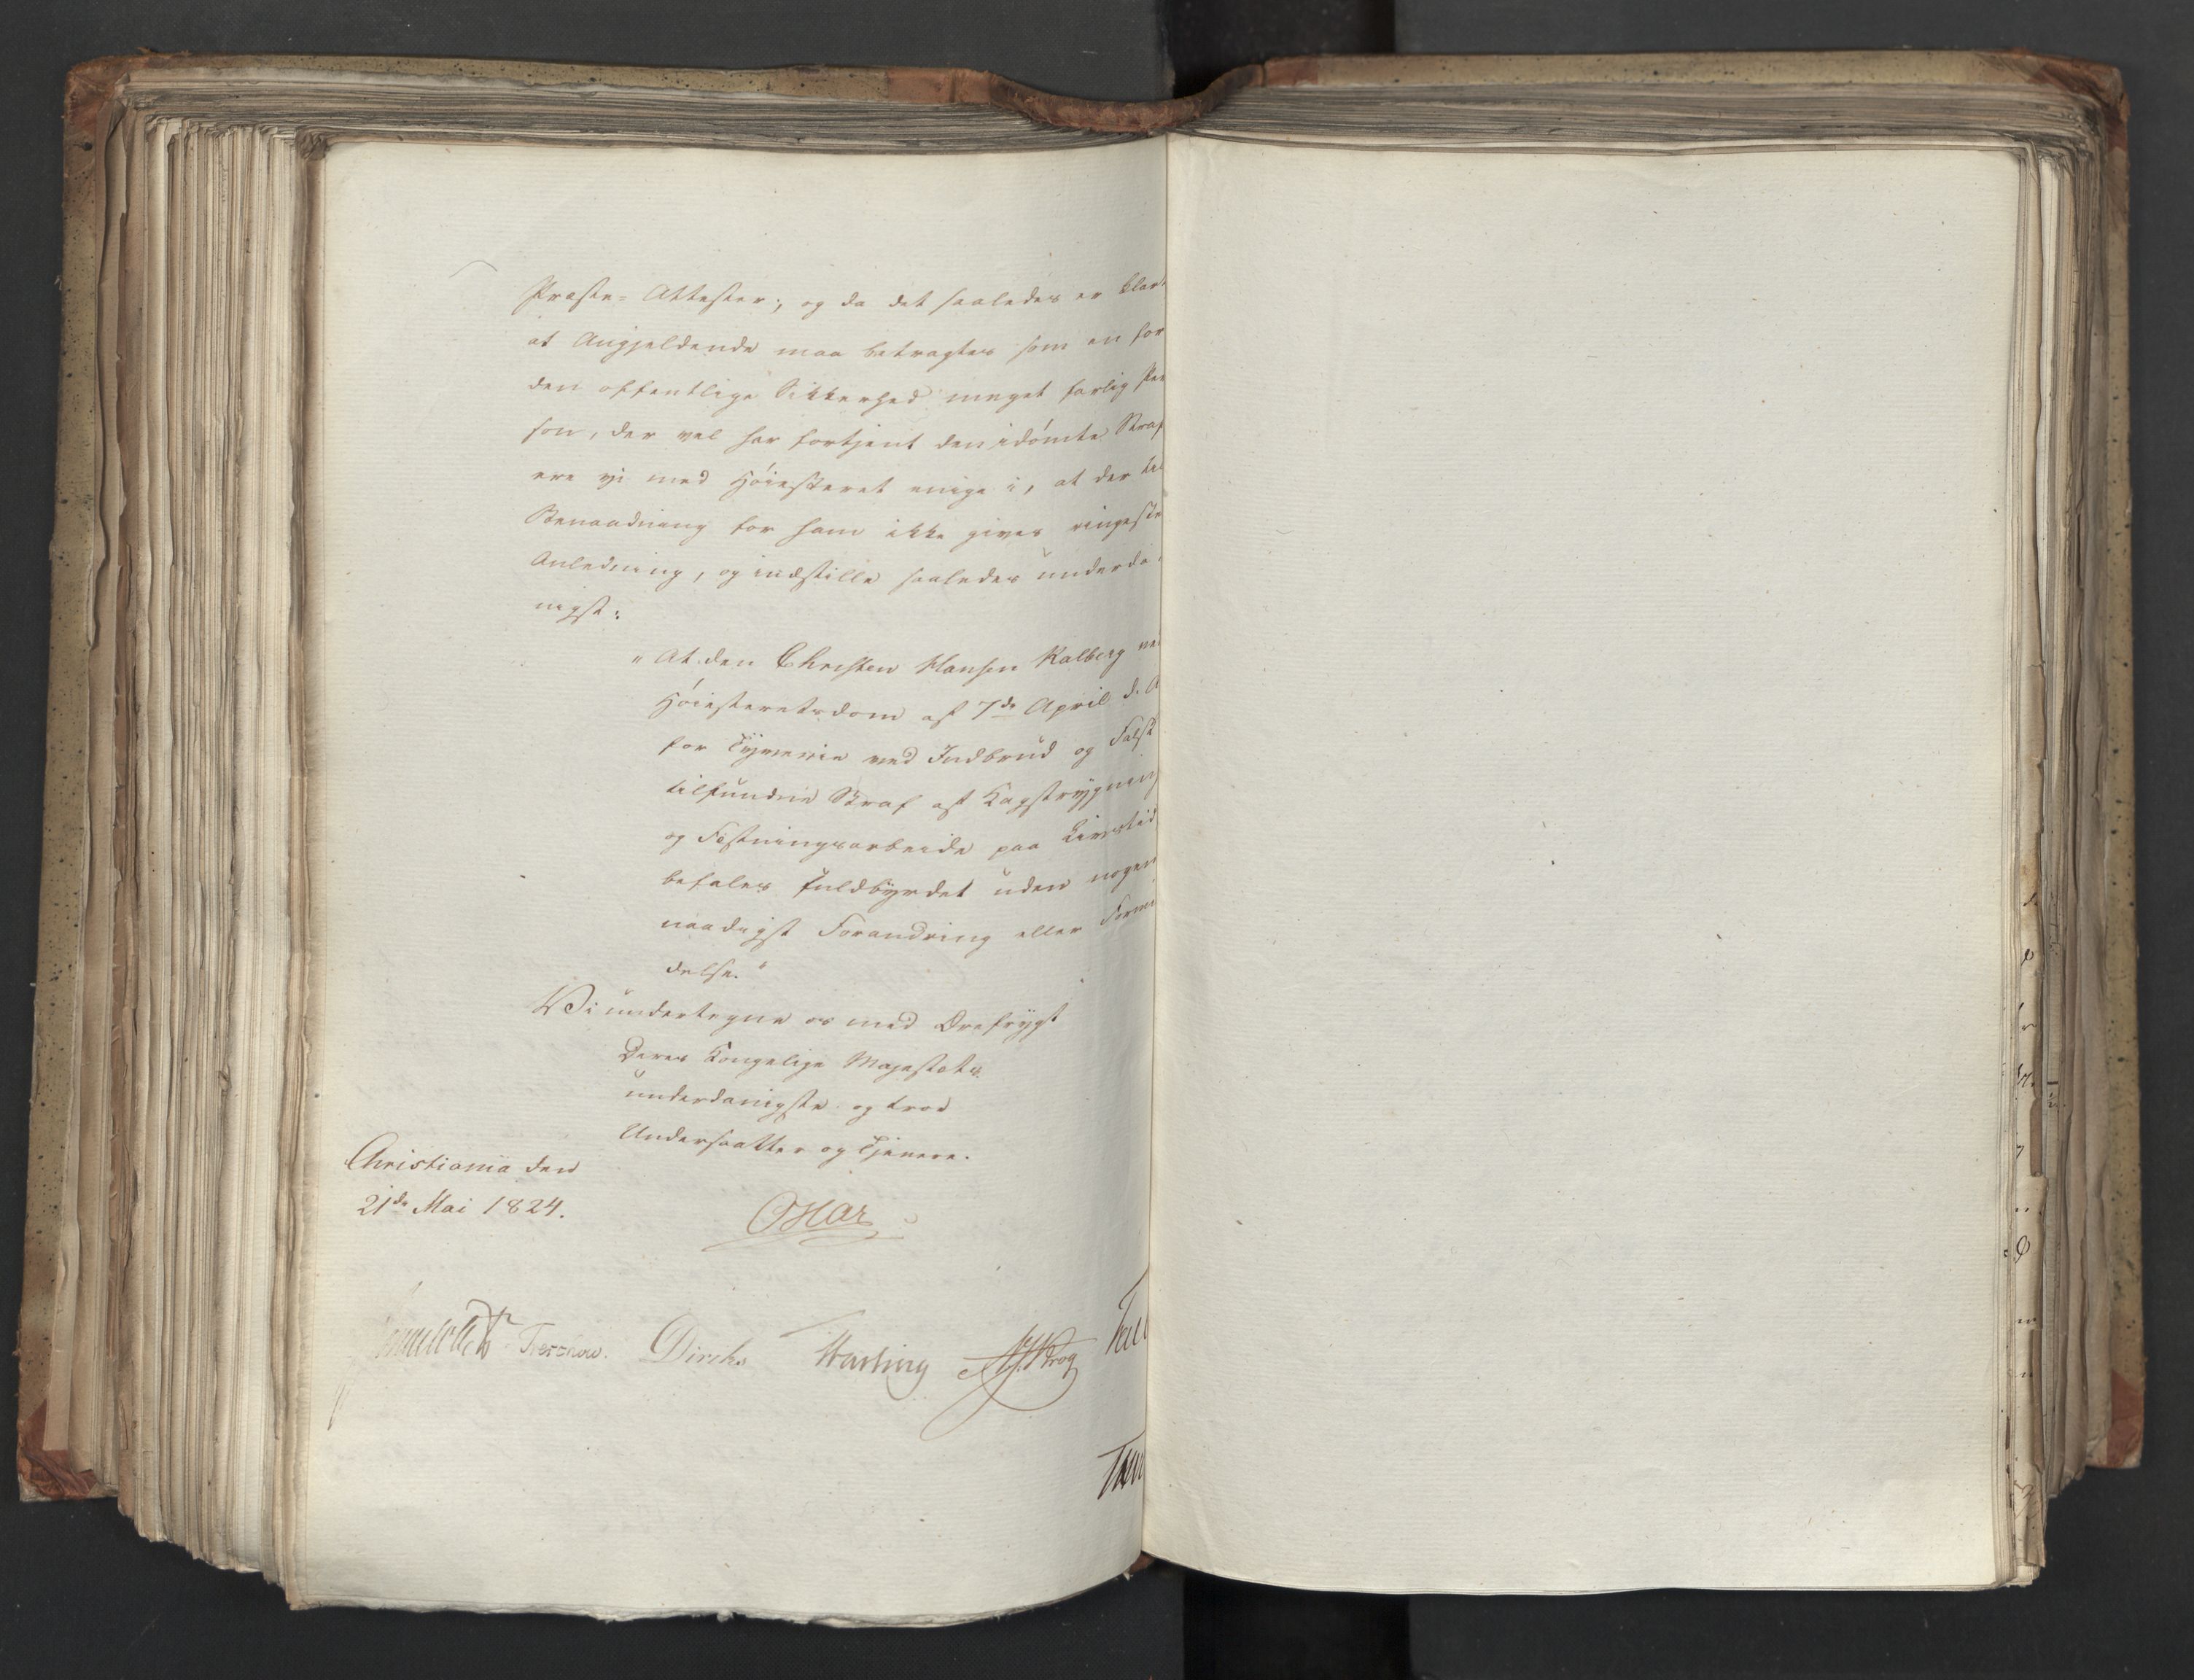 Præste-Attester; og da det saaledes er klart
at Angjeldende maa betragtes som en for
den offentlige Sikkerhed meget farlig Per
son, der vel har fortjent den idömte Straf
ere vi med Höiesteret enige i, at der til
Benaadning for ham ikke gives ringeste
Anledning, og indstille saaledes underda
nigst:
"At den Christen Hansen Kalberg ved
Höiesteretsdom af 7de April d. A
for Tyverie ved Indbrud og Falsk
tilfundne Straf af Kagstrygning
og Fæstningsarbeide paa Livstid
befales fuldbyrdet uden nogen
naadigst Forandring eller Formil
delse."
Vi undertegne os med Ærefrygt
Deres Kongelige Majestæts
underdanigste og troe
Undersaatter og Tjenere.
Christiania den
21de Mai 1824.
Oscar
Treschow. Diriks Krog